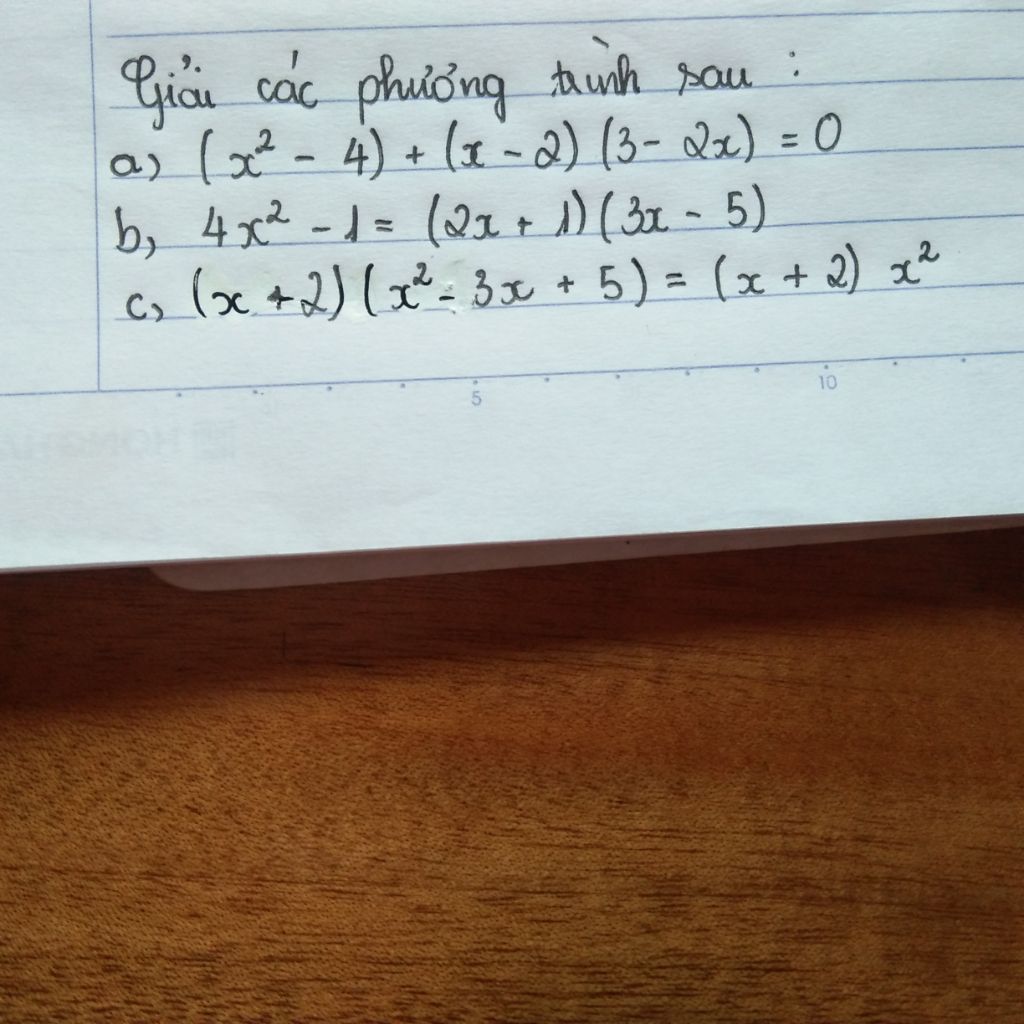 Giải các phương trình sau :
a) (x² - 4) + (x - 2) (3 - 2x) = 0
b, 4x² - 1 = (2x + 1) (3x - 5)
c, (x + 2) (x² - 3x + 5) = (x + 2) x²
5 10